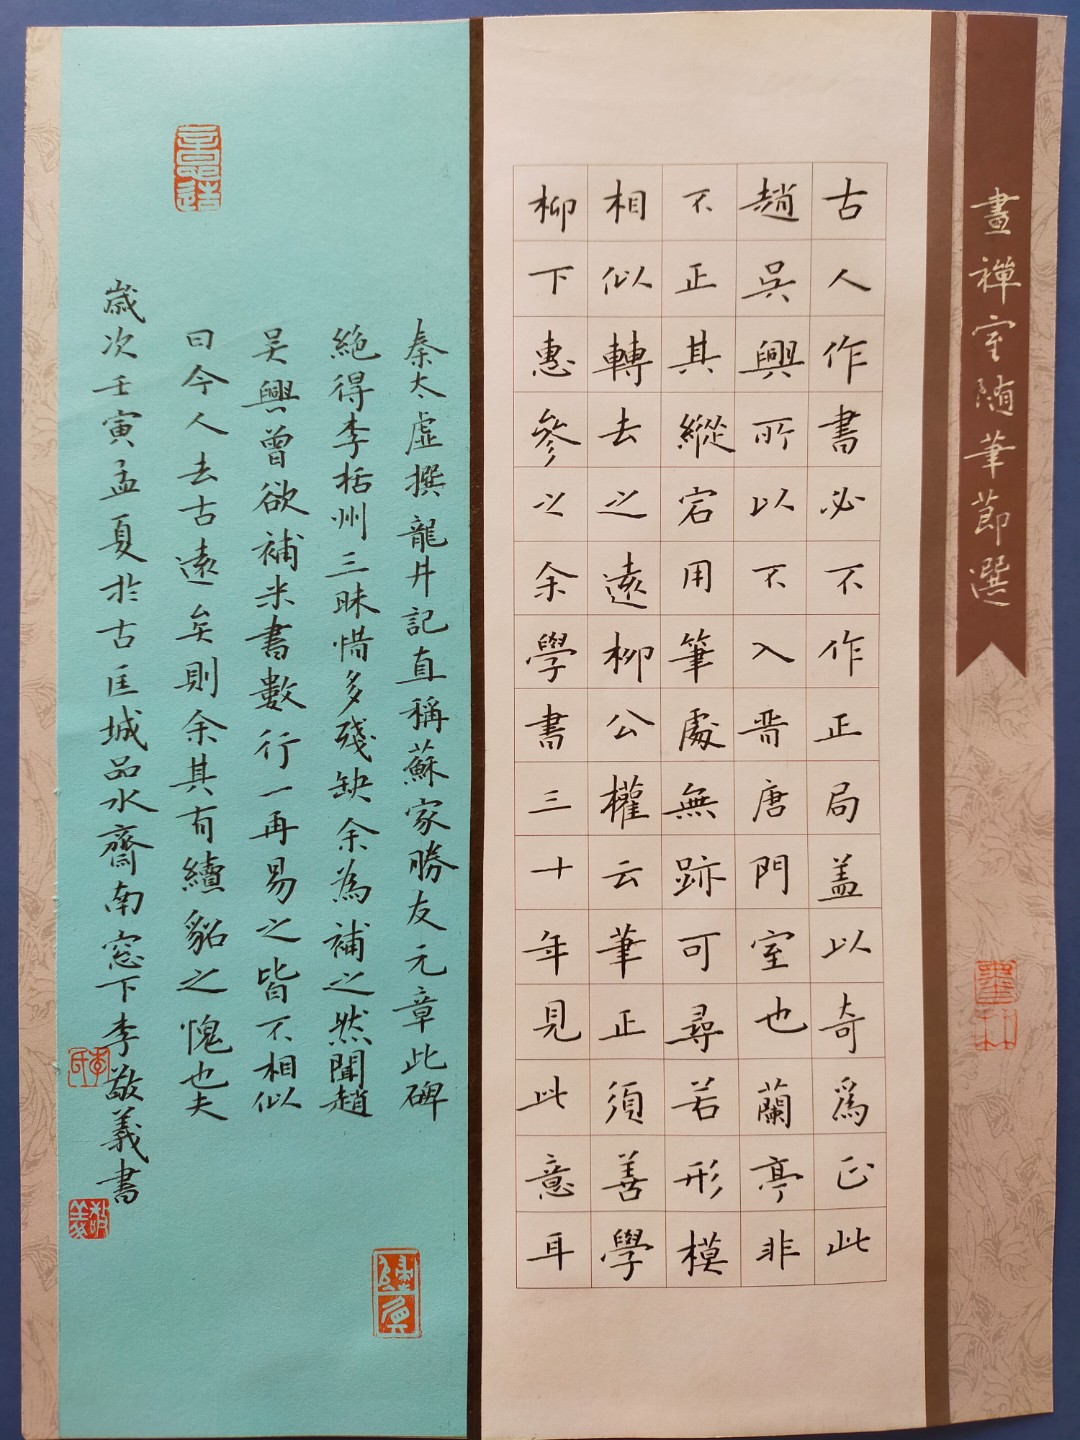 畫禪室随筆節選
古人作書必不作正局盖以奇爲正此
趙吳興所以不入晋唐門室也蘭亭非
不正其縱宕用筆處無跡可尋若形模
相似轉去之遠柳公權云筆正須善學
柳下惠參之余學書三十年見此意耳
秦太虛撰龍井記直稱蘇家勝友元章此碑
絶得李栝州三昧惜多殘缺余為補之然聞趙
吳興曾欲補米書數行一再易之皆不相似
曰今人去古遠矣則余其有續貂之愧也夫
歲次壬寅孟夏於古匡城品水齋南窓下李敬義書
敬義